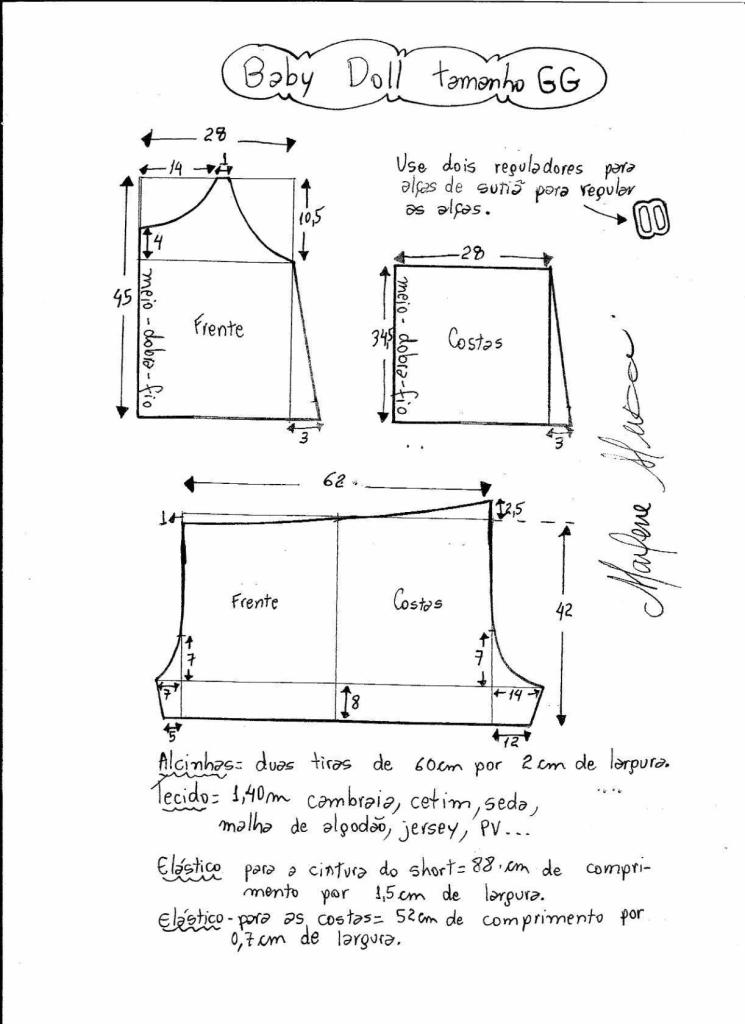 Baby Doll tamanho GG
28
14
1
10,5
4
45
meio-dobra-fio
Frente
3
Use dois reguladores para
alças de sutiã para regular
as alças.
28
34,5
meio-dobra-fio
Costas
3
Marlene
62
1
2,5
Frente
Costas
42
7
7
7
14
8
5
12
Alcinhas= duas tiras de 60cm por 2cm de largura.
Tecido= 1,40m cambraia, cetim, seda,
malha de algodão, jersey, PV...
Elástico para a cintura do short= 88 cm de compri-
mento por 1,5cm de largura.
Elástico-para as costas= 52cm de comprimento por
0,7cm de largura.